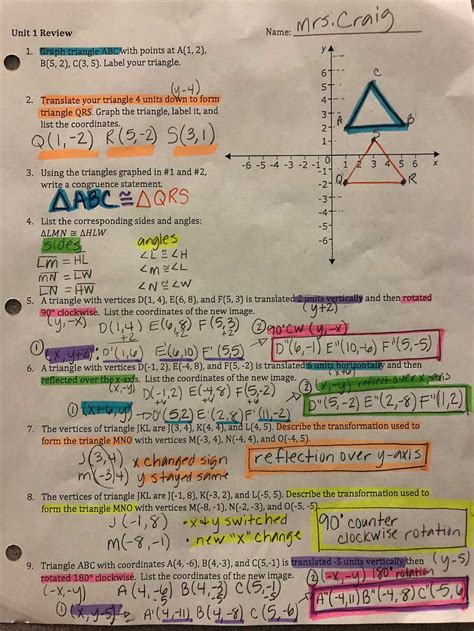 Unit 1 Review
Name: Mrs. Craig
1. Graph triangle ABC with points at A(1, 2),
B(5, 2), C(3, 5). Label your triangle.
(y-4)
2. Translate your triangle 4 units down to form
triangle QRS. Graph the triangle, label it, and
list the coordinates.
Q(1,-2) R(5,-2) S(3,1)
3. Using the triangles graphed in #1 and #2,
write a congruence statement.
ΔABC ≅ ΔQRS
y
6
5
4
3
2
1
C
A
B
S
-6 -5 -4 -3 -2 -1
1 2 3 4 5 6 x
-1
-2
-3
-4
-5
-6
Q
R
4. List the corresponding sides and angles:
ΔLMN ≅ ΔHLW
sides
angles
LM = HL
∠L ≅ ∠H
MN = LW
∠M ≅ ∠L
LN = HW
∠N ≅ ∠W
5. A triangle with vertices D(1, 4), E(6, 8), and F(5, 3) is translated 2 units vertically and then rotated
90° clockwise. List the coordinates of the new image.
(y+2)
(y,-x)
D(1,4) E(6,8) F(5,3)
+2 +2 +2
② 90°CW (y,-x)
① (x,y+2) D'(1,6) E'(6,10) F'(5,5)
D"(6,-1) E"(10,-6) F"(5,-5)
6. A triangle with vertices D(-1, 2), E(-4, 8), and F(-5, 2) is translated 6 units horizontally and then
reflected over the x-axis. List the coordinates of the new image.
(x,-y)
D(-1,2) E(-4,8) F(-5,2)
+6 +6 +6
(x,-y) reflect over x-axis
① (x+6,y) → D'(5,2) E'(2,8) F'
D"(5,-2) E"(2,-8) F"(1,2)
7. The vertices of triangle JKL are J(3, 4), K(4, 4), and L(4, 5). Describe the transformation used to
form the triangle MNO with vertices M(-3, 4), N(-4, 4), and O(-4, 5).
J(3,4) x changed sign
M(-3,4) y stayed same
reflection over y-axis
8. The vertices of triangle JKL are J(-1, 8), K(-3, 2), and L(-5, 5). Describe the transformation used to
form the triangle MNO with vertices M(-8, -1), N(-2, -3), and O(-5, -5).
J(-1,8) • x & y switched
M(-8,-1) • new "x" change
90° counter
clockwise rotation
9. Triangle ABC with coordinates A(4, -6), B(4,-3), and C(5,-1) is translated -5 units vertically then
rotated 180° clockwise. List the coordinates of the new image.
(y-5)
(-x,-y)
A(4,-6) B(4,-3) C(5,-1)
(2) (-x,-y) 180° rotation
① (x,y-5) A'(4,-11) B'(4,-8) C'(5,-6)
A"(-4,11) B"(-4,8) C"(-5,6)